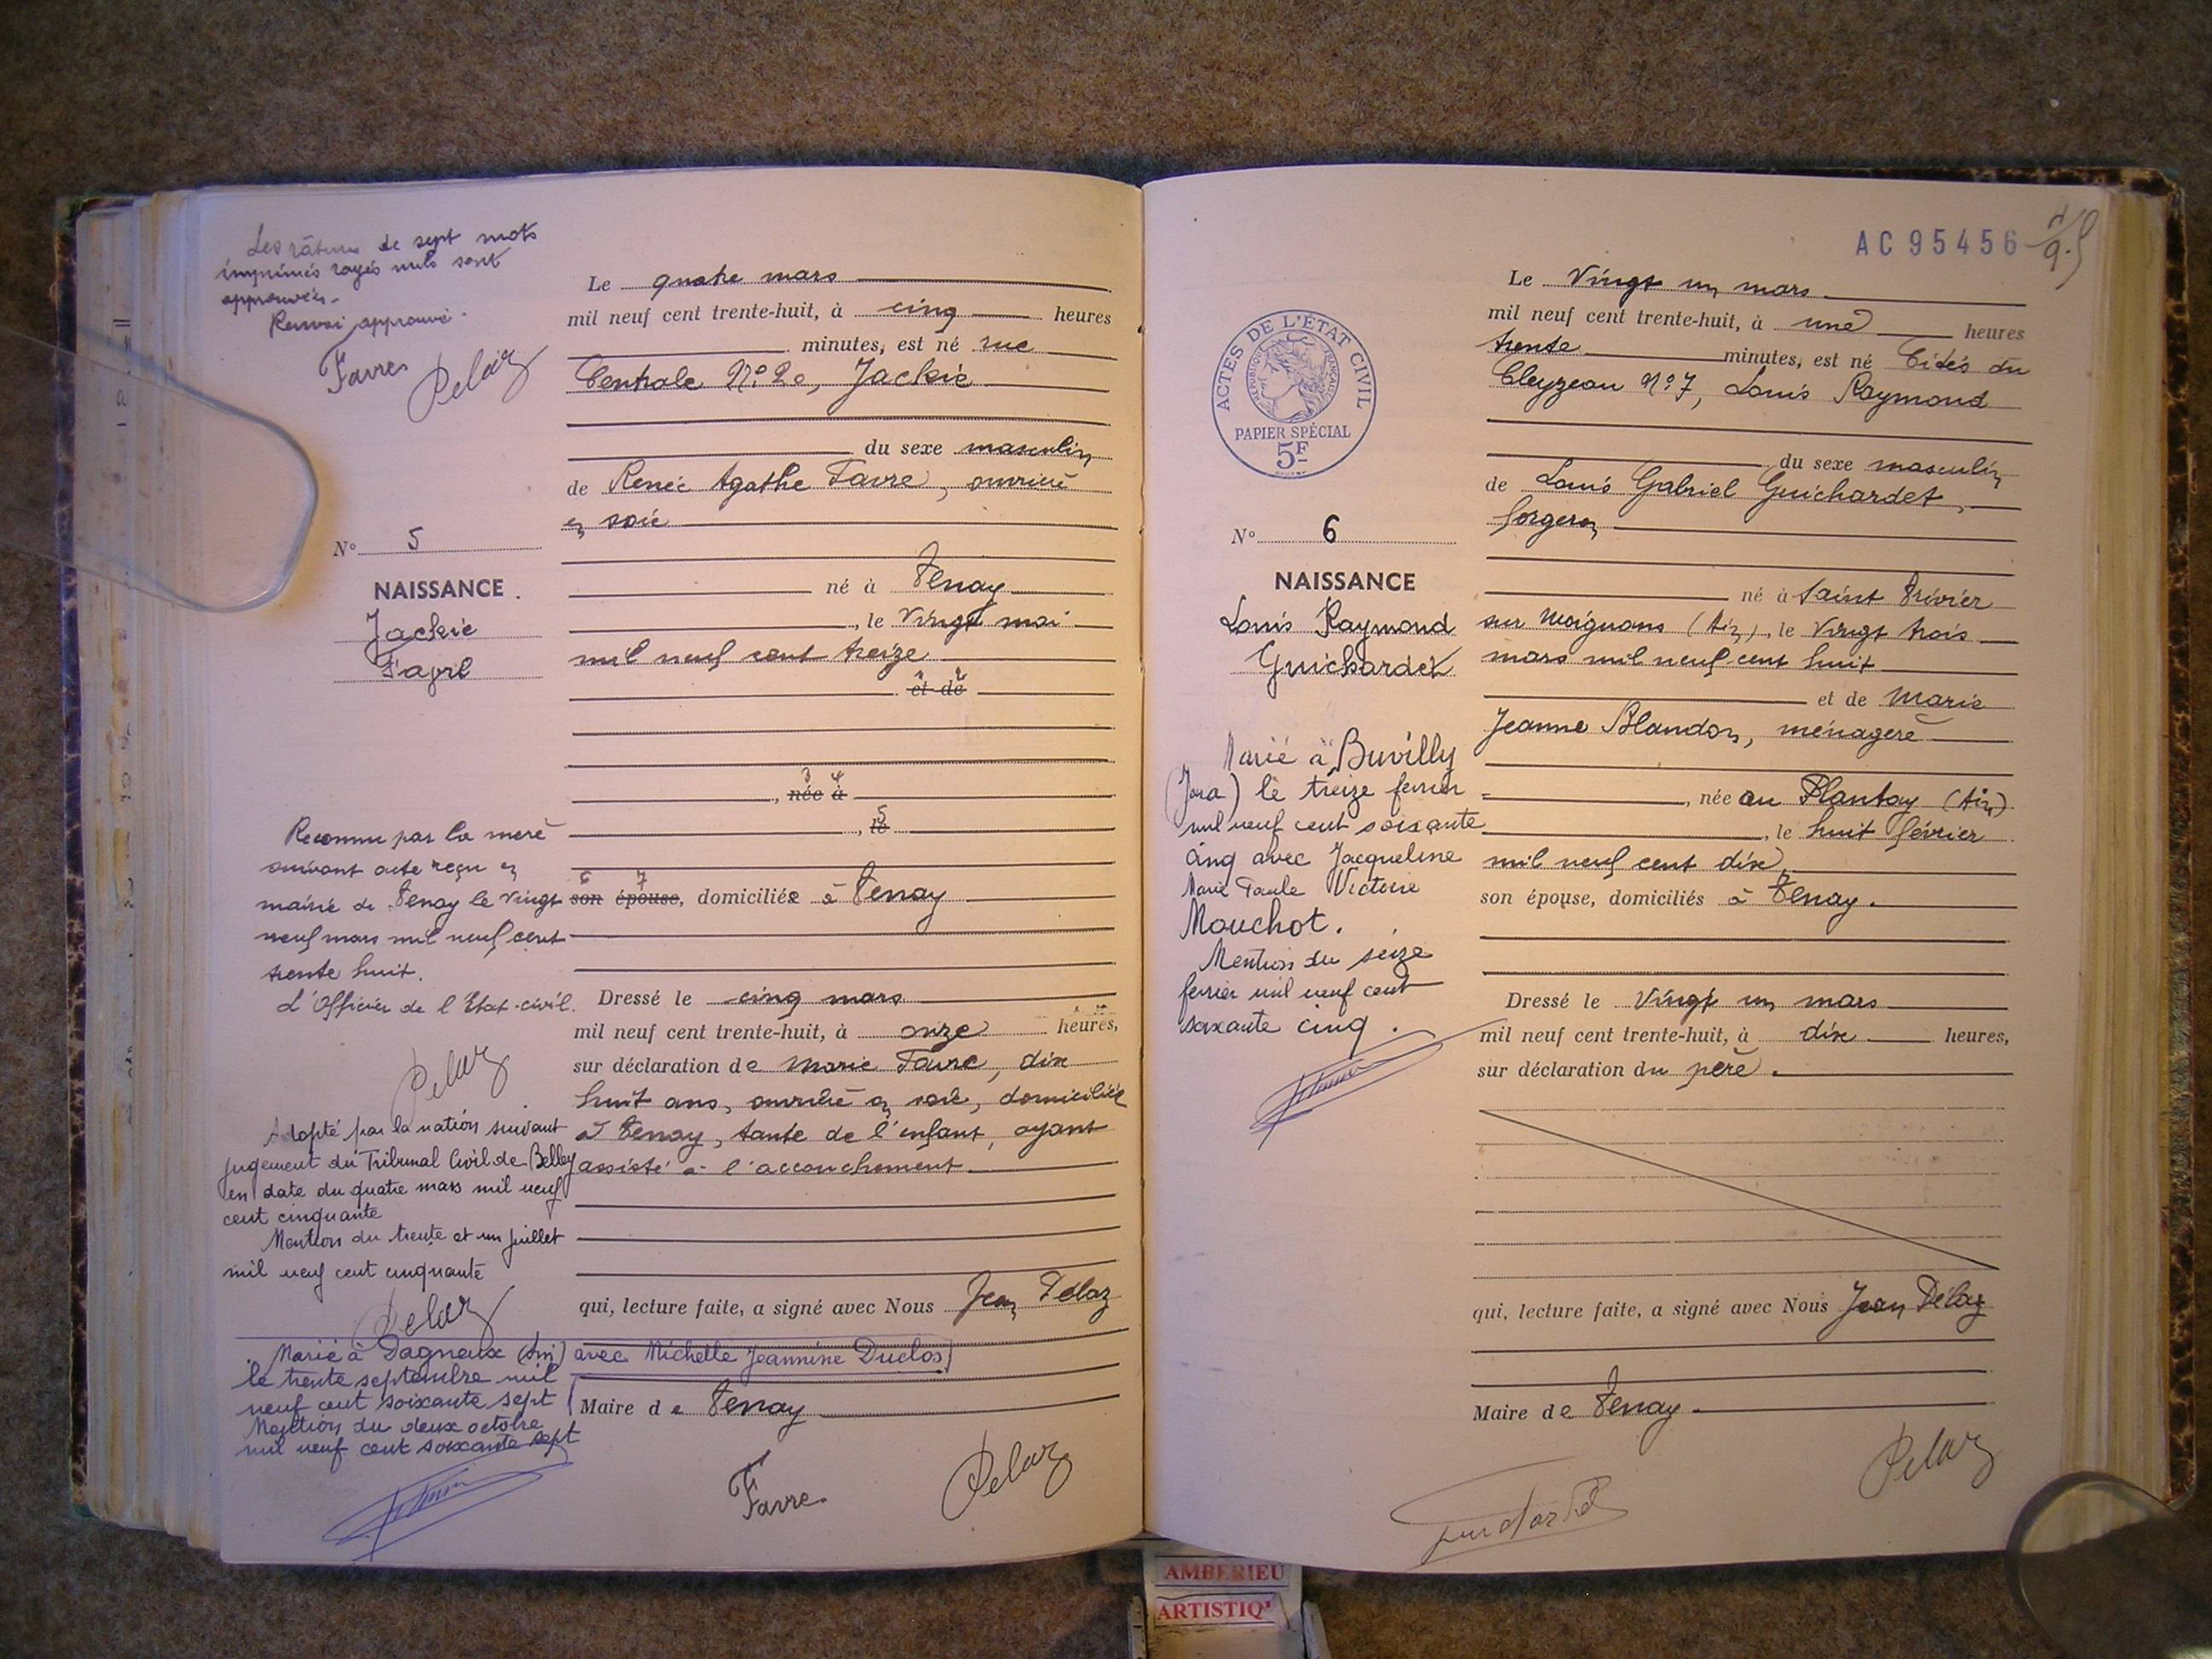 Les râtures de sept mots
imprimés rayés nuls sont
approuvées.
Renvoi approuvé.
Favre Pelaz
N° 5
NAISSANCE
Jackie
Favre
Reconnu par la mère
suivant acte reçu en
mairie de Tenay le vingt
neuf mars mil neuf cent
trente huit.
L'Officier de l'Etat-civil.
Pelaz
Adopté par la nation suivant
jugement du Tribunal Civil de Belley
en date du quatre mars mil neuf
cent cinquante
Mention du trente et un juillet
mil neuf cent cinquante
Pelaz
Marié à Dagneux (Ain) avec Michelle Jeannine Duclos
le trente septembre mil
neuf cent soixante sept
Mention du deux octobre
mil neuf cent soixante sept
Le quatre mars
mil neuf cent trente-huit, à cinq heures
minutes, est né rue
Centrale N° 20, Jackie
du sexe masculin
de Renée Agathe Favre, ouvrière
en soie
né à Tenay
, le vingt mai
mil neuf cent treize
1 2
et de
3 4
, née à
5
, le
6 7
son épouse, domiciliée à Tenay
Dressé le cinq mars
mil neuf cent trente-huit, à onze heures,
sur déclaration de Marie Favre, dix
huit ans, ouvrière en soie, domiciliée
à Tenay, tante de l'enfant, ayant
assisté à l'accouchement.
qui, lecture faite, a signé avec Nous Jean Pélaz
Maire de Tenay
Favre Pelaz
AC 95456
ACTES DE L'ÉTAT CIVIL
RÉPUBLIQUE FRANÇAISE
PAPIER SPÉCIAL
5F
N° 6
NAISSANCE
Louis Raymond
Guichardet
Marié à Buvilly
(Jura) le treize février
mil neuf cent soixante
cinq avec Jacqueline
Marie Paule Victoire
Mouchot.
Mention du seize
février mil neuf cent
soixante cinq.
Le Vingt un mars
mil neuf cent trente-huit, à une heures
trente minutes, est né Cités du
Cleyzeau N° 7, Louis Raymond
du sexe masculin
de Louis Gabriel Guichardet,
forgeron
né à Saint Trivier
sur Moignans (Ain), le vingt trois
mars mil neuf cent huit
et de Marie
Jeanne Blandon, ménagère
, née au Plantay (Ain).
, le huit février
mil neuf cent dix,
son épouse, domiciliés à Tenay.
Dressé le Vingt un mars
mil neuf cent trente-huit, à dix heures,
sur déclaration du père.
qui, lecture faite, a signé avec Nous Jean Pélaz
Maire de Tenay.
Pelaz
AMBERIEU
ARTISTIQ